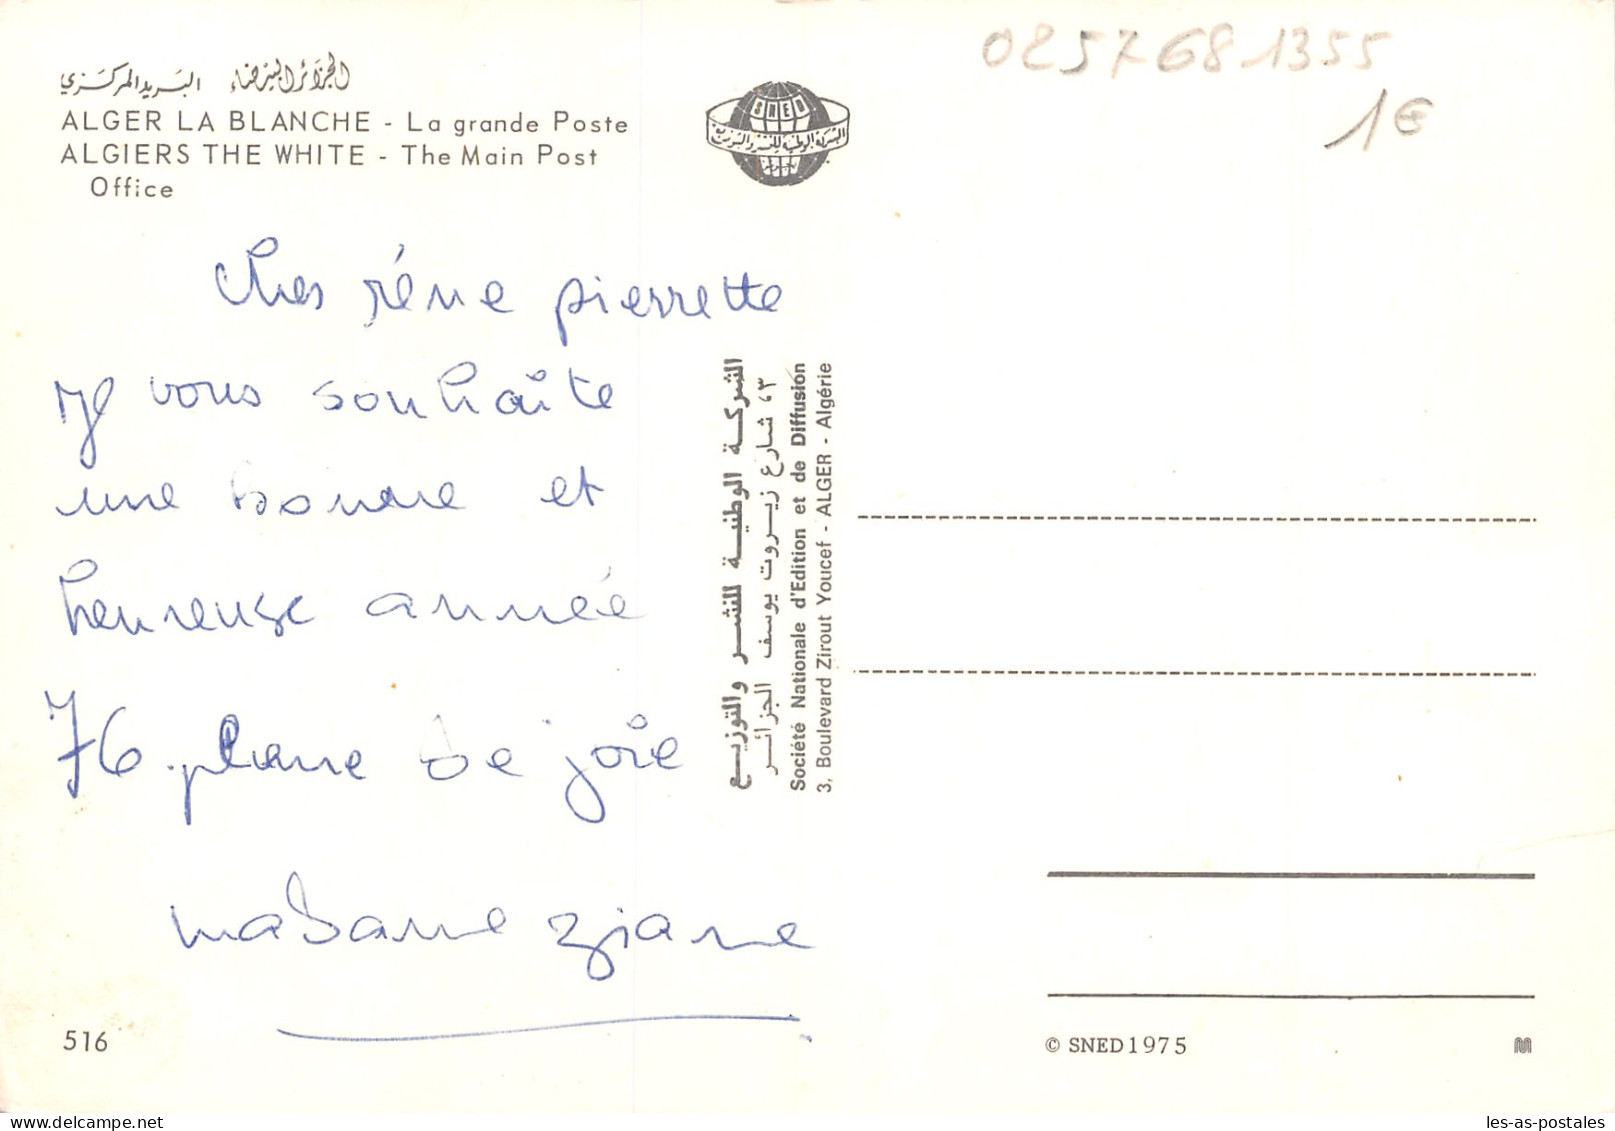 0257681355
1€
الجزائر البيضاء البريد المركزي
ALGER LA BLANCHE - La grande Poste
ALGIERS THE WHITE - The Main Post
Office
SNED
الشركة الوطنية للنشر والتوزيع
Cher réne pierrette
Je vous souhaîte
une bonne et
heureuse année
76 plaine de joîe
madame ziane
الشركة الوطنية للنشر والتوزيع
٣، شارع زيروت يوسف الجزائر
Société Nationale d'Edition et de Diffusion
3, Boulevard Zirout Youcef - ALGER - Algérie
516
© SNED 1975
les-as-postales